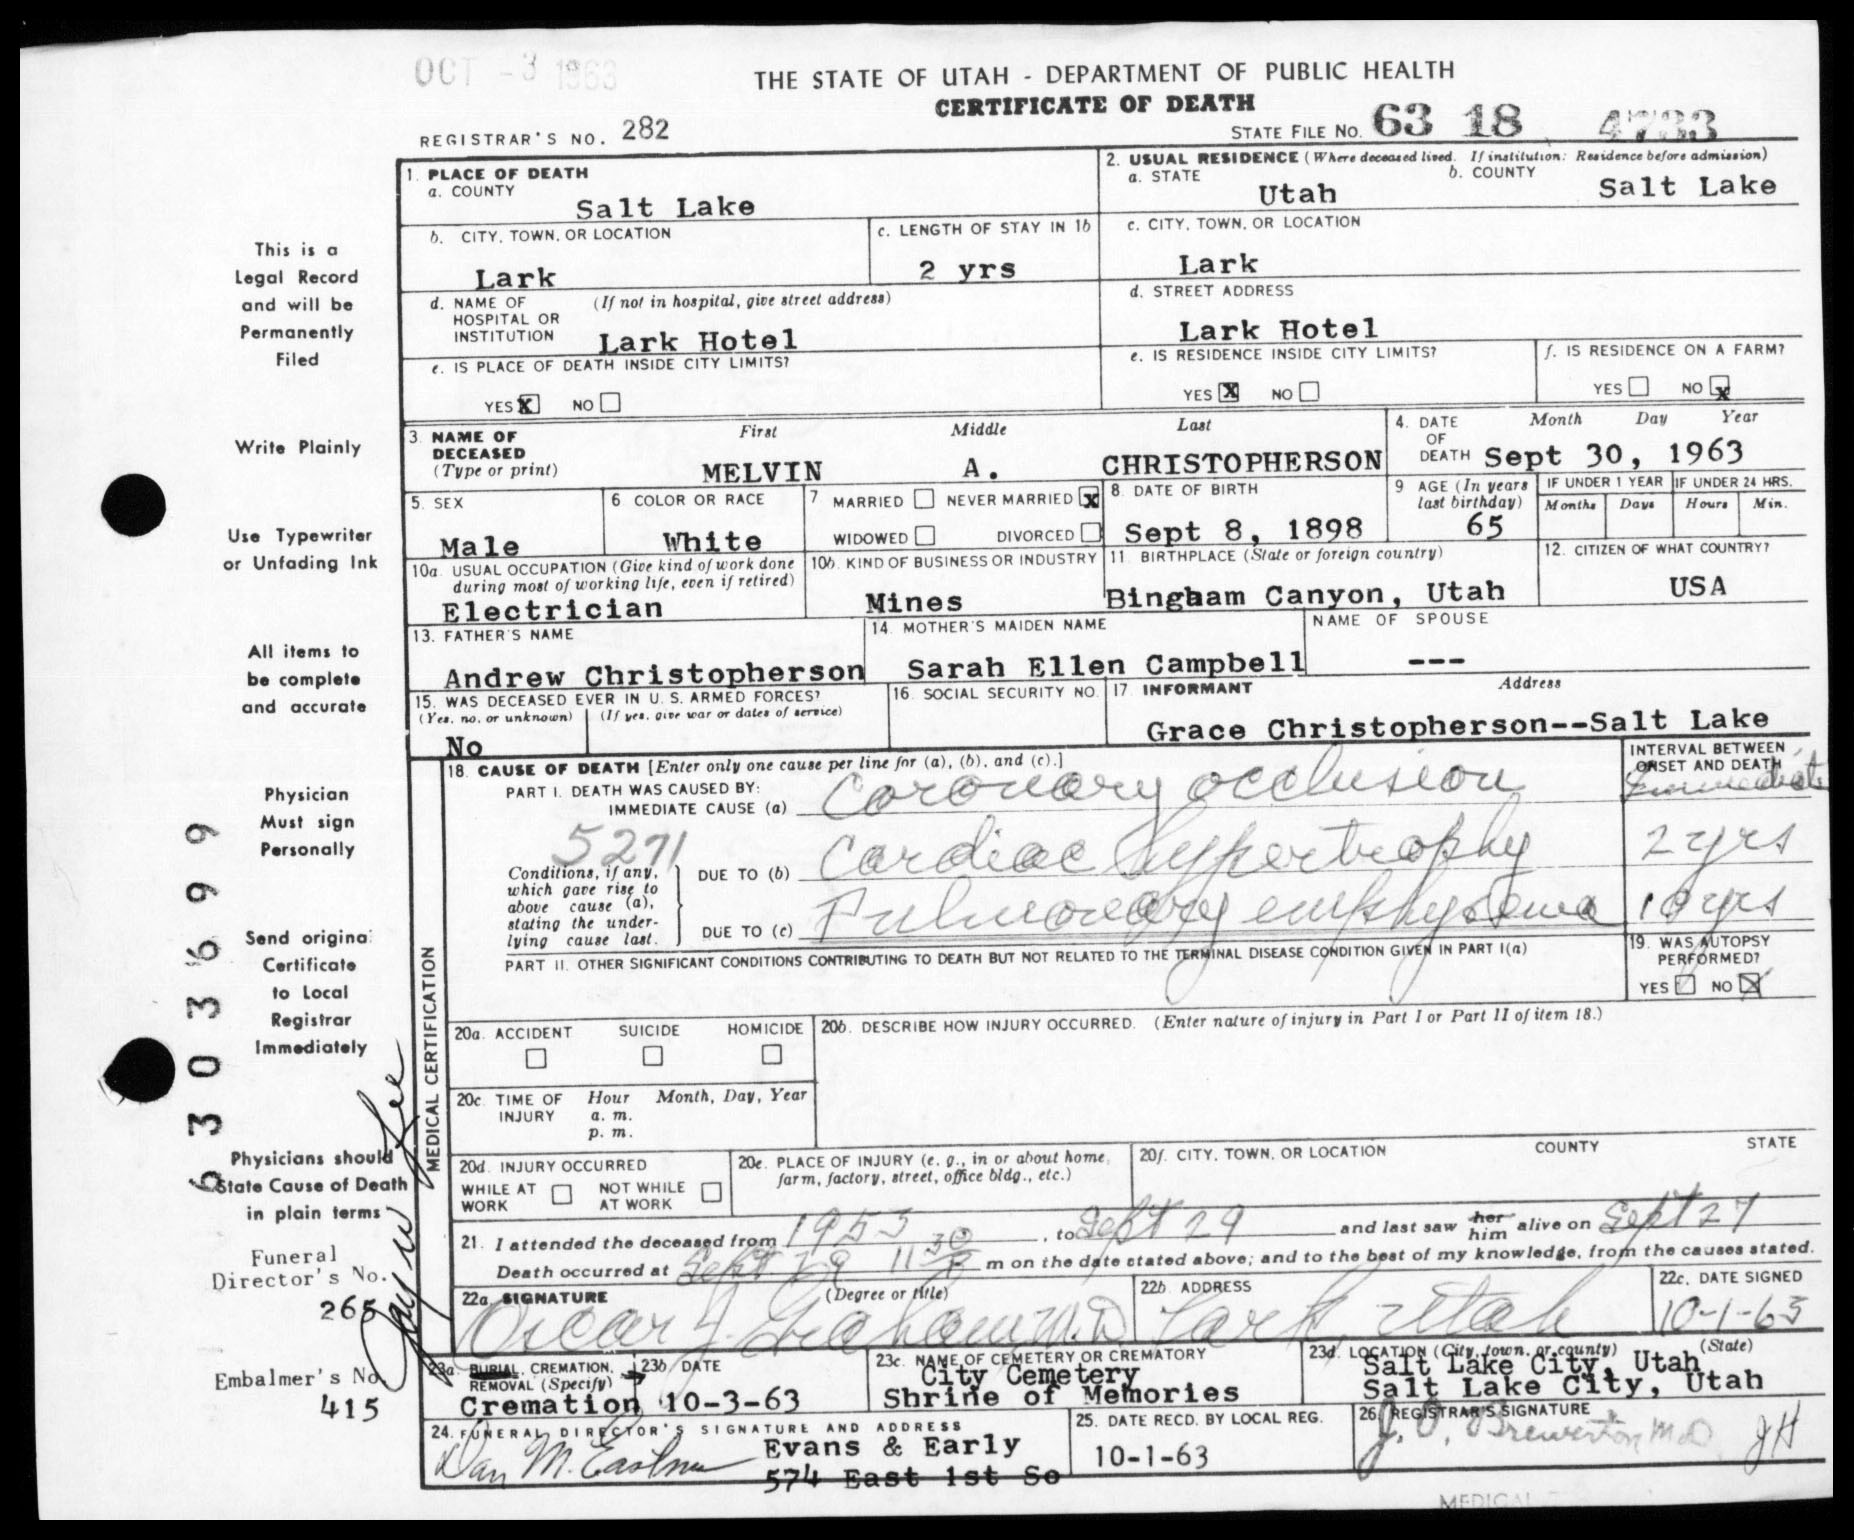 OCT - 3 1963
THE STATE OF UTAH - DEPARTMENT OF PUBLIC HEALTH
CERTIFICATE OF DEATH
REGISTRAR'S NO. 282
STATE FILE NO. 63 18 4733
1. PLACE OF DEATH
a. COUNTY
Salt Lake
2. USUAL RESIDENCE (Where deceased lived. If institution: Residence before admission)
a. STATE
Utah
b. COUNTY
Salt Lake
b. CITY, TOWN, OR LOCATION
Lark
c. LENGTH OF STAY IN 1b
2 yrs
c. CITY, TOWN, OR LOCATION
Lark
d. NAME OF HOSPITAL OR INSTITUTION
(If not in hospital, give street address)
Lark Hotel
d. STREET ADDRESS
Lark Hotel
e. IS PLACE OF DEATH INSIDE CITY LIMITS?
YES X NO
e. IS RESIDENCE INSIDE CITY LIMITS?
YES X NO
f. IS RESIDENCE ON A FARM?
YES NO X
3. NAME OF DECEASED
(Type or print)
First Middle Last
MELVIN A. CHRISTOPHERSON
4. DATE OF DEATH
Month Day Year
Sept 30, 1963
5. SEX
Male
6. COLOR OR RACE
White
7. MARRIED NEVER MARRIED X
WIDOWED DIVORCED
8. DATE OF BIRTH
Sept 8, 1898
9. AGE (In years last birthday)
65
IF UNDER 1 YEAR
Months Days
IF UNDER 24 HRS.
Hours Min.
10a. USUAL OCCUPATION (Give kind of work done during most of working life, even if retired)
Electrician
10b. KIND OF BUSINESS OR INDUSTRY
Mines
11. BIRTHPLACE (State or foreign country)
Bingham Canyon, Utah
12. CITIZEN OF WHAT COUNTRY?
USA
13. FATHER'S NAME
Andrew Christopherson
14. MOTHER'S MAIDEN NAME
Sarah Ellen Campbell
NAME OF SPOUSE
---
15. WAS DECEASED EVER IN U. S. ARMED FORCES?
(Yes, no, or unknown) (If yes, give war or dates of service)
No
16. SOCIAL SECURITY NO.
17. INFORMANT Address
Grace Christopherson--Salt Lake
MEDICAL CERTIFICATION
18. CAUSE OF DEATH [Enter only one cause per line for (a), (b), and (c).]
INTERVAL BETWEEN ONSET AND DEATH
PART I. DEATH WAS CAUSED BY:
IMMEDIATE CAUSE (a) Coronary occlusion Immediate
5271
Conditions, if any, which gave rise to above cause (a), stating the underlying cause last.
DUE TO (b) Cardiac hypertrophy 2 yrs
DUE TO (c) Pulmonary emphysema 10 yrs
PART II. OTHER SIGNIFICANT CONDITIONS CONTRIBUTING TO DEATH BUT NOT RELATED TO THE TERMINAL DISEASE CONDITION GIVEN IN PART I(a)
19. WAS AUTOPSY PERFORMED?
YES NO X
20a. ACCIDENT SUICIDE HOMICIDE
20b. DESCRIBE HOW INJURY OCCURRED. (Enter nature of injury in Part I or Part II of item 18.)
20c. TIME OF INJURY
Hour Month, Day, Year
a. m.
p. m.
20d. INJURY OCCURRED
WHILE AT WORK NOT WHILE AT WORK
20e. PLACE OF INJURY (e. g., in or about home, farm, factory, street, office bldg., etc.)
20f. CITY, TOWN, OR LOCATION COUNTY STATE
21. I attended the deceased from 1953, to Sept 29 and last saw her him alive on Sept 27
Death occurred at Sept 29 11 30 P m on the date stated above; and to the best of my knowledge, from the causes stated.
22a. SIGNATURE (Degree or title)
Oscar J. Graham M.D.
22b. ADDRESS
Lark, Utah
22c. DATE SIGNED
10-1-63
23a. BURIAL, CREMATION, REMOVAL (Specify)
Cremation
23b. DATE
10-3-63
23c. NAME OF CEMETERY OR CREMATORY
City Cemetery
Shrine of Memories
23d. LOCATION (City, town, or county) (State)
Salt Lake City, Utah
Salt Lake City, Utah
24. FUNERAL DIRECTOR'S SIGNATURE AND ADDRESS
Dan M. Eastman
Evans & Early
574 East 1st So
25. DATE RECD. BY LOCAL REG.
10-1-63
26. REGISTRAR'S SIGNATURE
J. O. Brewerton M.D. JH
This is a
Legal Record
and will be
Permanently
Filed
Write Plainly
Use Typewriter
or Unfading Ink
All items to
be complete
and accurate
Physician
Must sign
Personally
Send origina
Certificate
to Local
Registrar
Immediately
Physicians should
State Cause of Death
in plain terms
Funeral
Director's No.
265
Embalmer's No.
415
6303699
Lee
MEDICAL